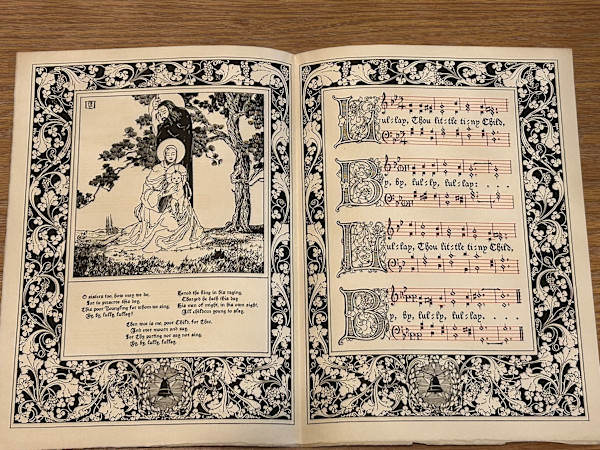 O sisters too, how may we do,
For to preserve this day
This poor Youngling for whom we sing,
By, by, lully, lullay?
Herod the King in his raging,
Charged he hath this day
His men of might, in his own sight,
All children young to slay.
Then woe is me, poor Child, for Thee,
And ever mourn and say,
For Thy parting nor say nor sing,
By, by, lully, lullay.
Lul:lay, Thou lit:tle ti:ny Child,
By, by, lul:ly, lul:lay: . . . .
Lul:lay, Thou lit:tle ti:ny Child,
By, by, lul:ly, lul:lay: . . . .